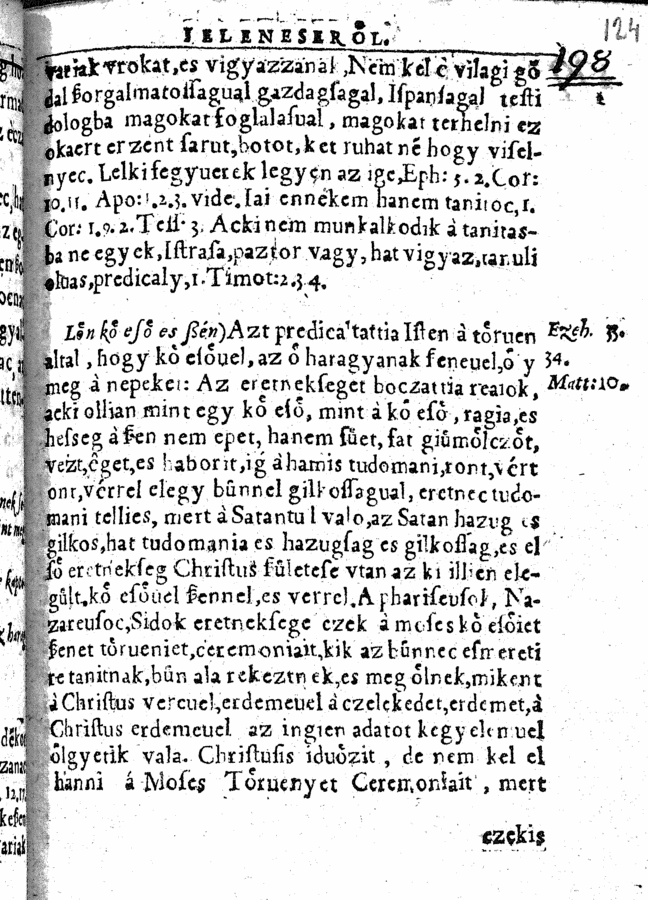 IELENESERŐL.
124
198
variak vrokat, es vigyazzanak, Nem kel é vilagi gő
dal ßorgalmatossagual gazdagsagal, Ispansagal testi
dologba magokat foglalasual, magokat terhelni ez
okaert erzent sarut, botot, ket ruhat né hogy visel-
nyec. Lelki fegyuerek legyen az ige, Eph: 5. 2. Cor:
10. 11. Apo: 1. 2. 3. vide. Iai ennekem hanem tanitoc, 1.
Cor: 1. 9. 2. Tess. 3. Acki nem munkalkodik à tanitas-
ba ne egyek, Istrasa, paztor vagy, hat vigyaz, tanuli
oluas, predicaly, 1. Timot: 2. 3. 4.
Lőn kő eső es ßén) Azt predicaltattia Isten à tőruen
altal, hogy kő esőuel, az ő haragyanak feneuel, ő y
meg à nepeket: Az eretnekseget boczattia reaiok,
acki ollian mint egy kő eső, mint à kő eső, ragia, es
hesseg à ßen nem epet, hanem sűet, fat giűmőlczőt,
vezt, éget, es haborit, ig à hamis tudomani, ront, vért
ont, vérrel elegy bűnnel gilkossagual, eretnec tudo-
mani tellies, mert à Satantul valo, az Satan hazug es
gilkos, hat tudomania es hazugsag es gilkossag, es el
ső eretnekseg Christus sűletese vtan az ki illien ele-
gűlt kő esőuel ßennel, es verrel. A phariseusok, Na-
zareusoc, Sidok eretneksege ezek à moses kő esőiet
ßenet tőrueniet, ceremoniait, kik az bűnnec esmereti
re tanitnak, bűn ala rekeztnek, es meg őlnek, mikent
à Christus vereuel, erdemeuel à czelekedet, erdemet, à
Christus erdemeuel az ingien adatot kegyelemuel
őlgyetik vala. Christusis iduőzit, de nem kel el
hanni á Moses Tőruenyet Ceremoniait, mert
ezekis
Ezeh. 33.
34.
Matt: 10.